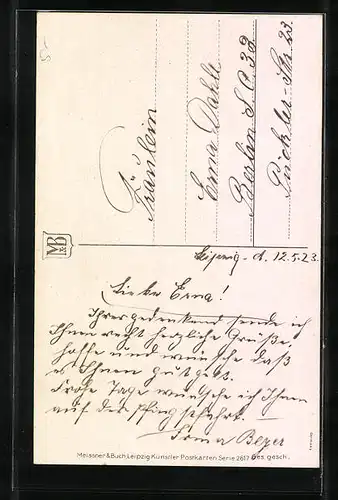 Fräulein
Erna Dahle
Berlin S.O. 33
Pückler-Str. 23.
M&B
Leipzig - d. 12.5.23.
Liebe Erna!
Ihrer gedenkend sende ich
Ihnen recht herzliche Grüße,
hoffe und wünsche daß
es Ihnen gut geht.
Frohe Tage wünsche ich Ihnen
auf die
Irma Beyer
Meissner & Buch, Leipzig Künstler Postkarten Serie 2617 Ges. gesch.